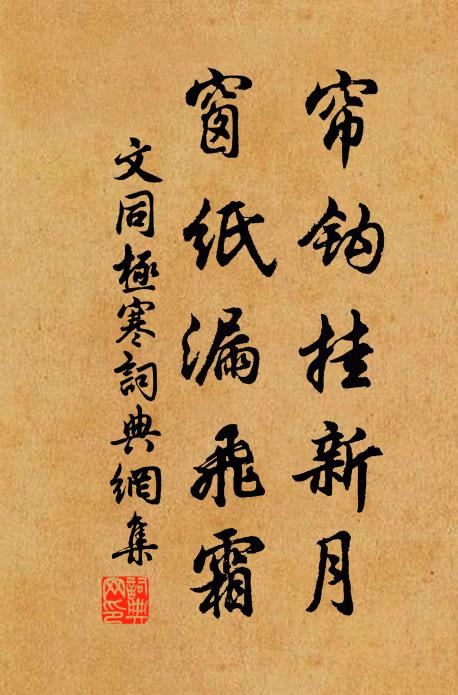 帘钩挂新月
窗纸漏飛霜
文同極寒詞典網集
詞典网印